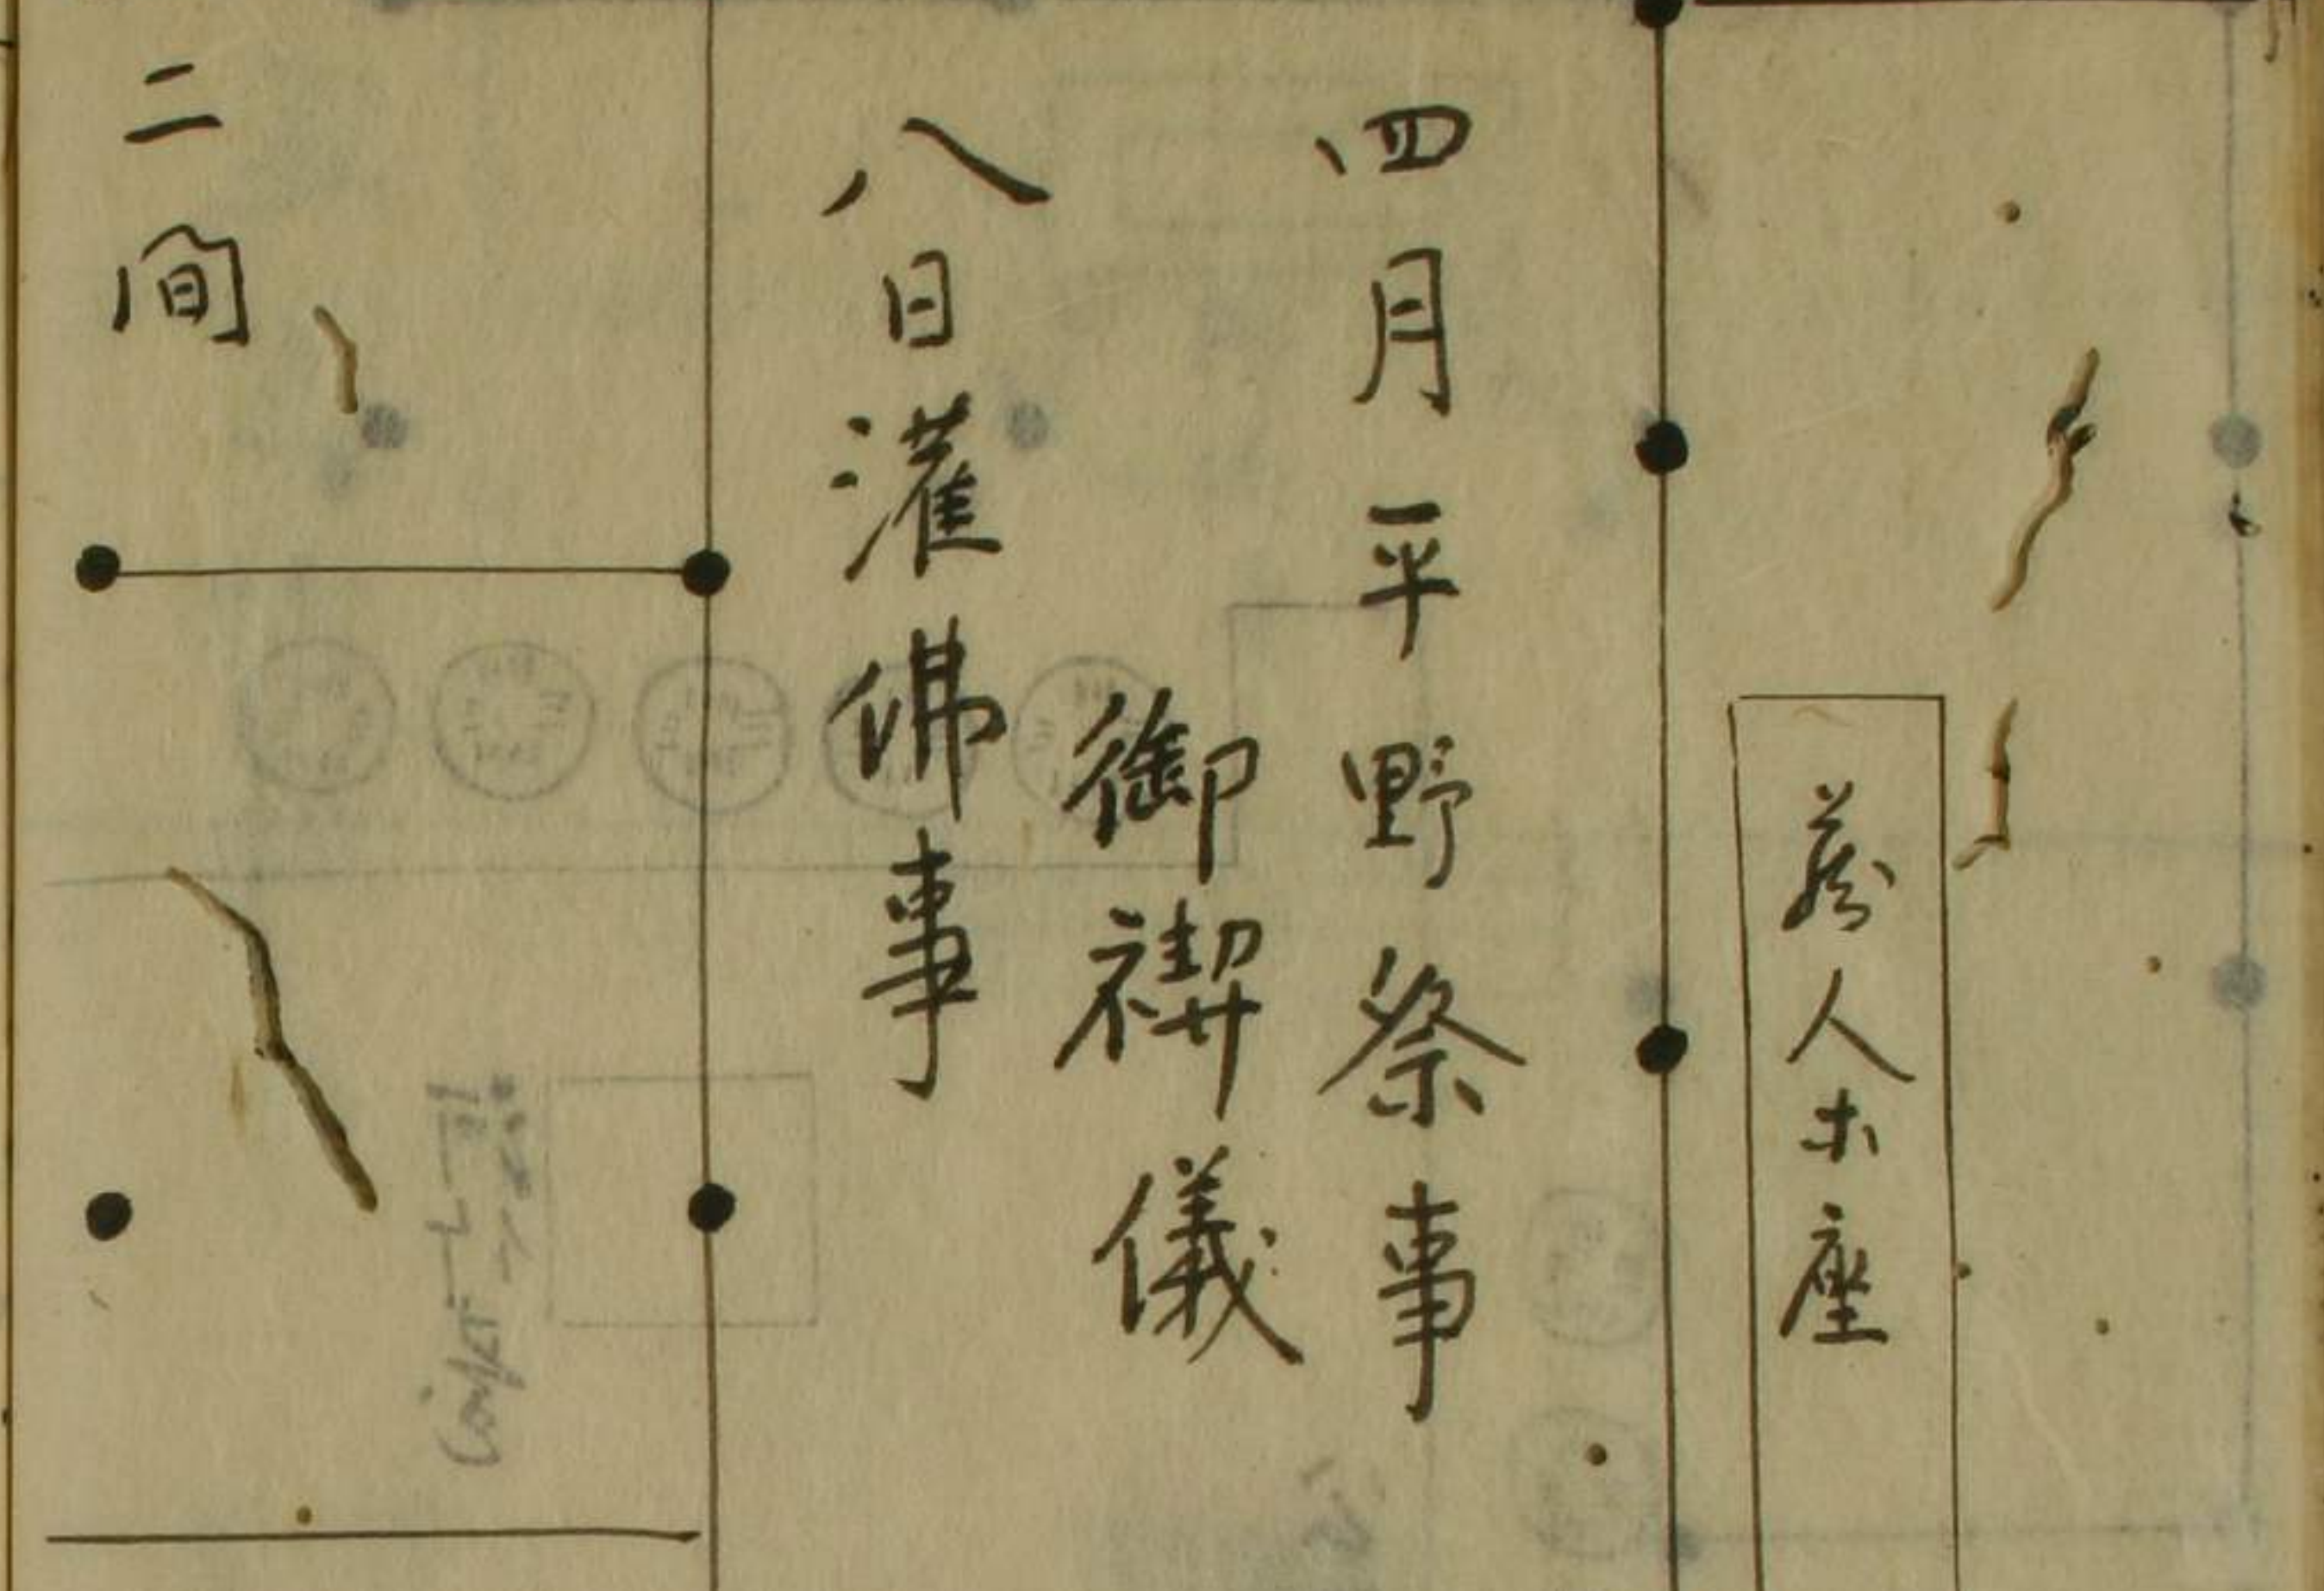 蔵人等座
四月平野祭事
御禊儀
八日灌佛事
二間